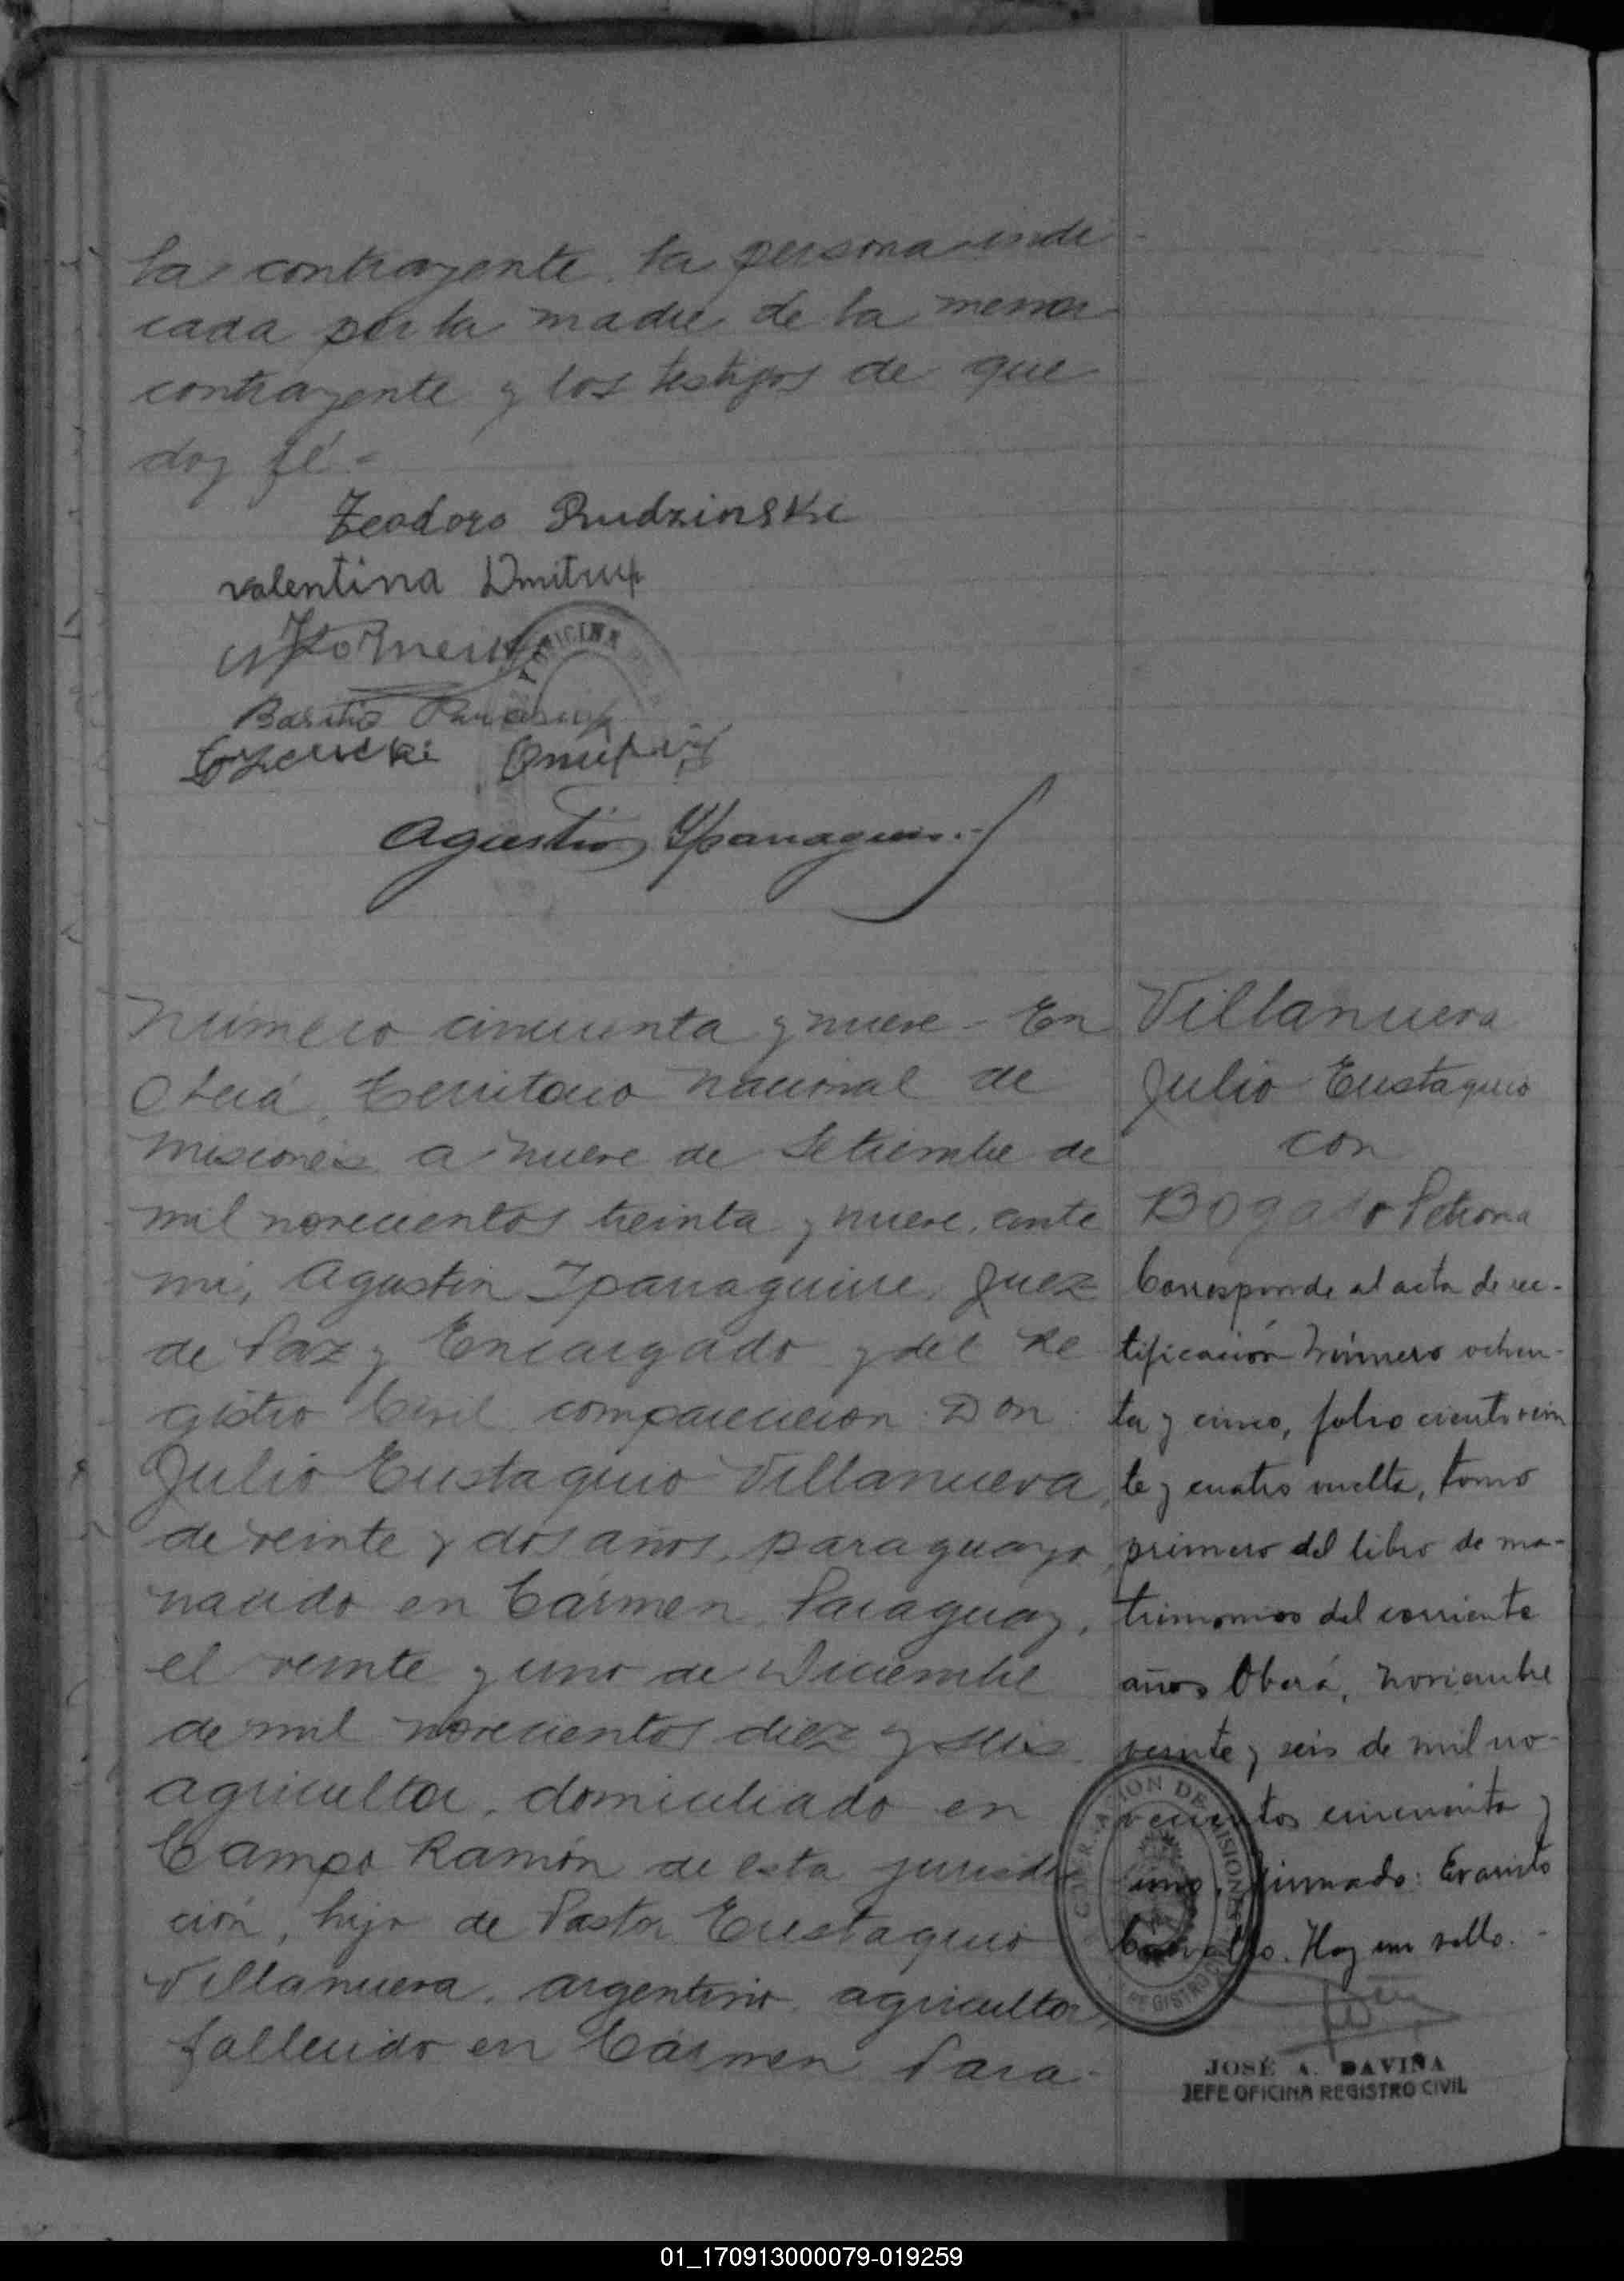 la contrayente, la persona indi
cada por la madre de la menor
contrayente y los testigos de que
doy fé =
Teodoro Rudzinski
valentina Dmitruk
Basilio
Agustin Yparraguirre
Número cincuenta y nueve - En
Oberá, Territorio Nacional de
Misiones a nueve de Setiembre de
mil novecientos treinta y nueve, ante
mi, Agustin Iparraguirre, Juez
de Paz y Encargado y del Re
gistro Civil comparecieron Don
Julio Eustaquio Villanueva,
de veinte y dos años, paraguayo,
nacido en Cármen, Paraguay,
el veinte y uno de Diciembre
de mil novecientos diez y seis
agricultor, domiciliado en
Campo Ramón de esta jurisdic
ción, hijo de Pastor Eustaquio
Villanueva, argentino, agricultor,
fallecido en Cármen Para-
Villanueva
Julio Eustaquio
con
Bogado Petrona
Corresponde al acta de rec-
tificación Número ochen-
ta y cinco, folio ciento vein
te y cuatro vuelta, tomo
primero del libro de ma-
trimonios del corriente
año. Oberá, Noviembre
veinte y seis de mil no-
vecientos cincuenta y
uno. Firmado: Evaristo
Carvallo. Hay un sello. -
JOSÉ A. DAVIÑA
JEFE OFICINA REGISTRO CIVIL
01_170913000079-019259